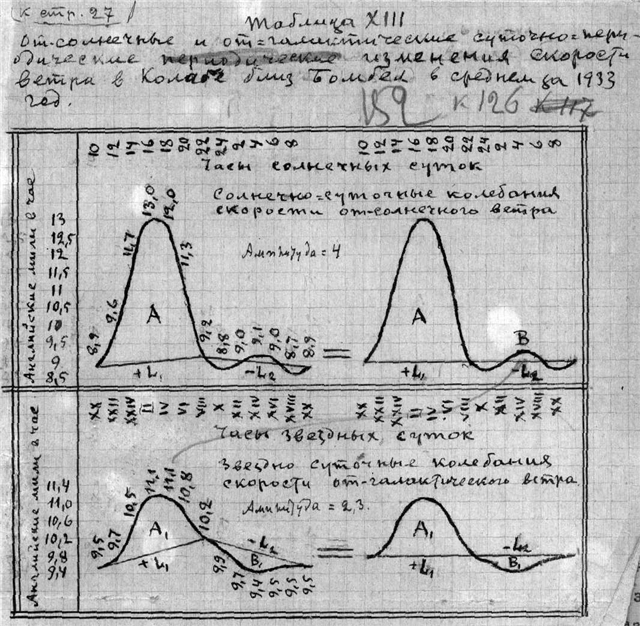 (к стр. 27)
Таблица XIII
От-солнечные и от=галактические суточно=пери-
одические периодические изменения скорости
ветра в Колабе близ Бомбея в среднем за 1933
год.
152 к 126 к 117
10 12 14 16 18 20 22 24 2 4 6 8
10 12 14 16 18 20 22 24 2 4 6 8
Часы солнечных суток
Солнечно=суточные колебания
скорости от-солнечного ветра
Амплитуда = 4
Английские мили в час
13
12,5
12
11,5
11
10,5
10
9,5
9
8,5
8,9 9,6 11,7 13,0 12,0 11,3 9,2 8,8 9,0 9,1 9,0 8,7 8,9
A
+L₁ -L₂
=
A B
+L₁ -L₂
XX XXII XXIV II IV VI VIII X XII XIV XVI XVIII XX
XX XXII XXIV II IV VI VIII X XII XIV XVIII XX
Часы звездных суток
Звездно суточные колебания
скорости от-галактического ветра
Амплитуда = 2,3.
Английские мили в час
11,4
11,0
10,6
10,2
9,8
9,4
9,5 9,7 10,5 11,1 11,1 10,8 10,2 9,9 9,7 9,4 9,5 9,5 9,5
A₁
+L₁ -L₂
B₁
=
A₁ -L₂
+L₁ B₁